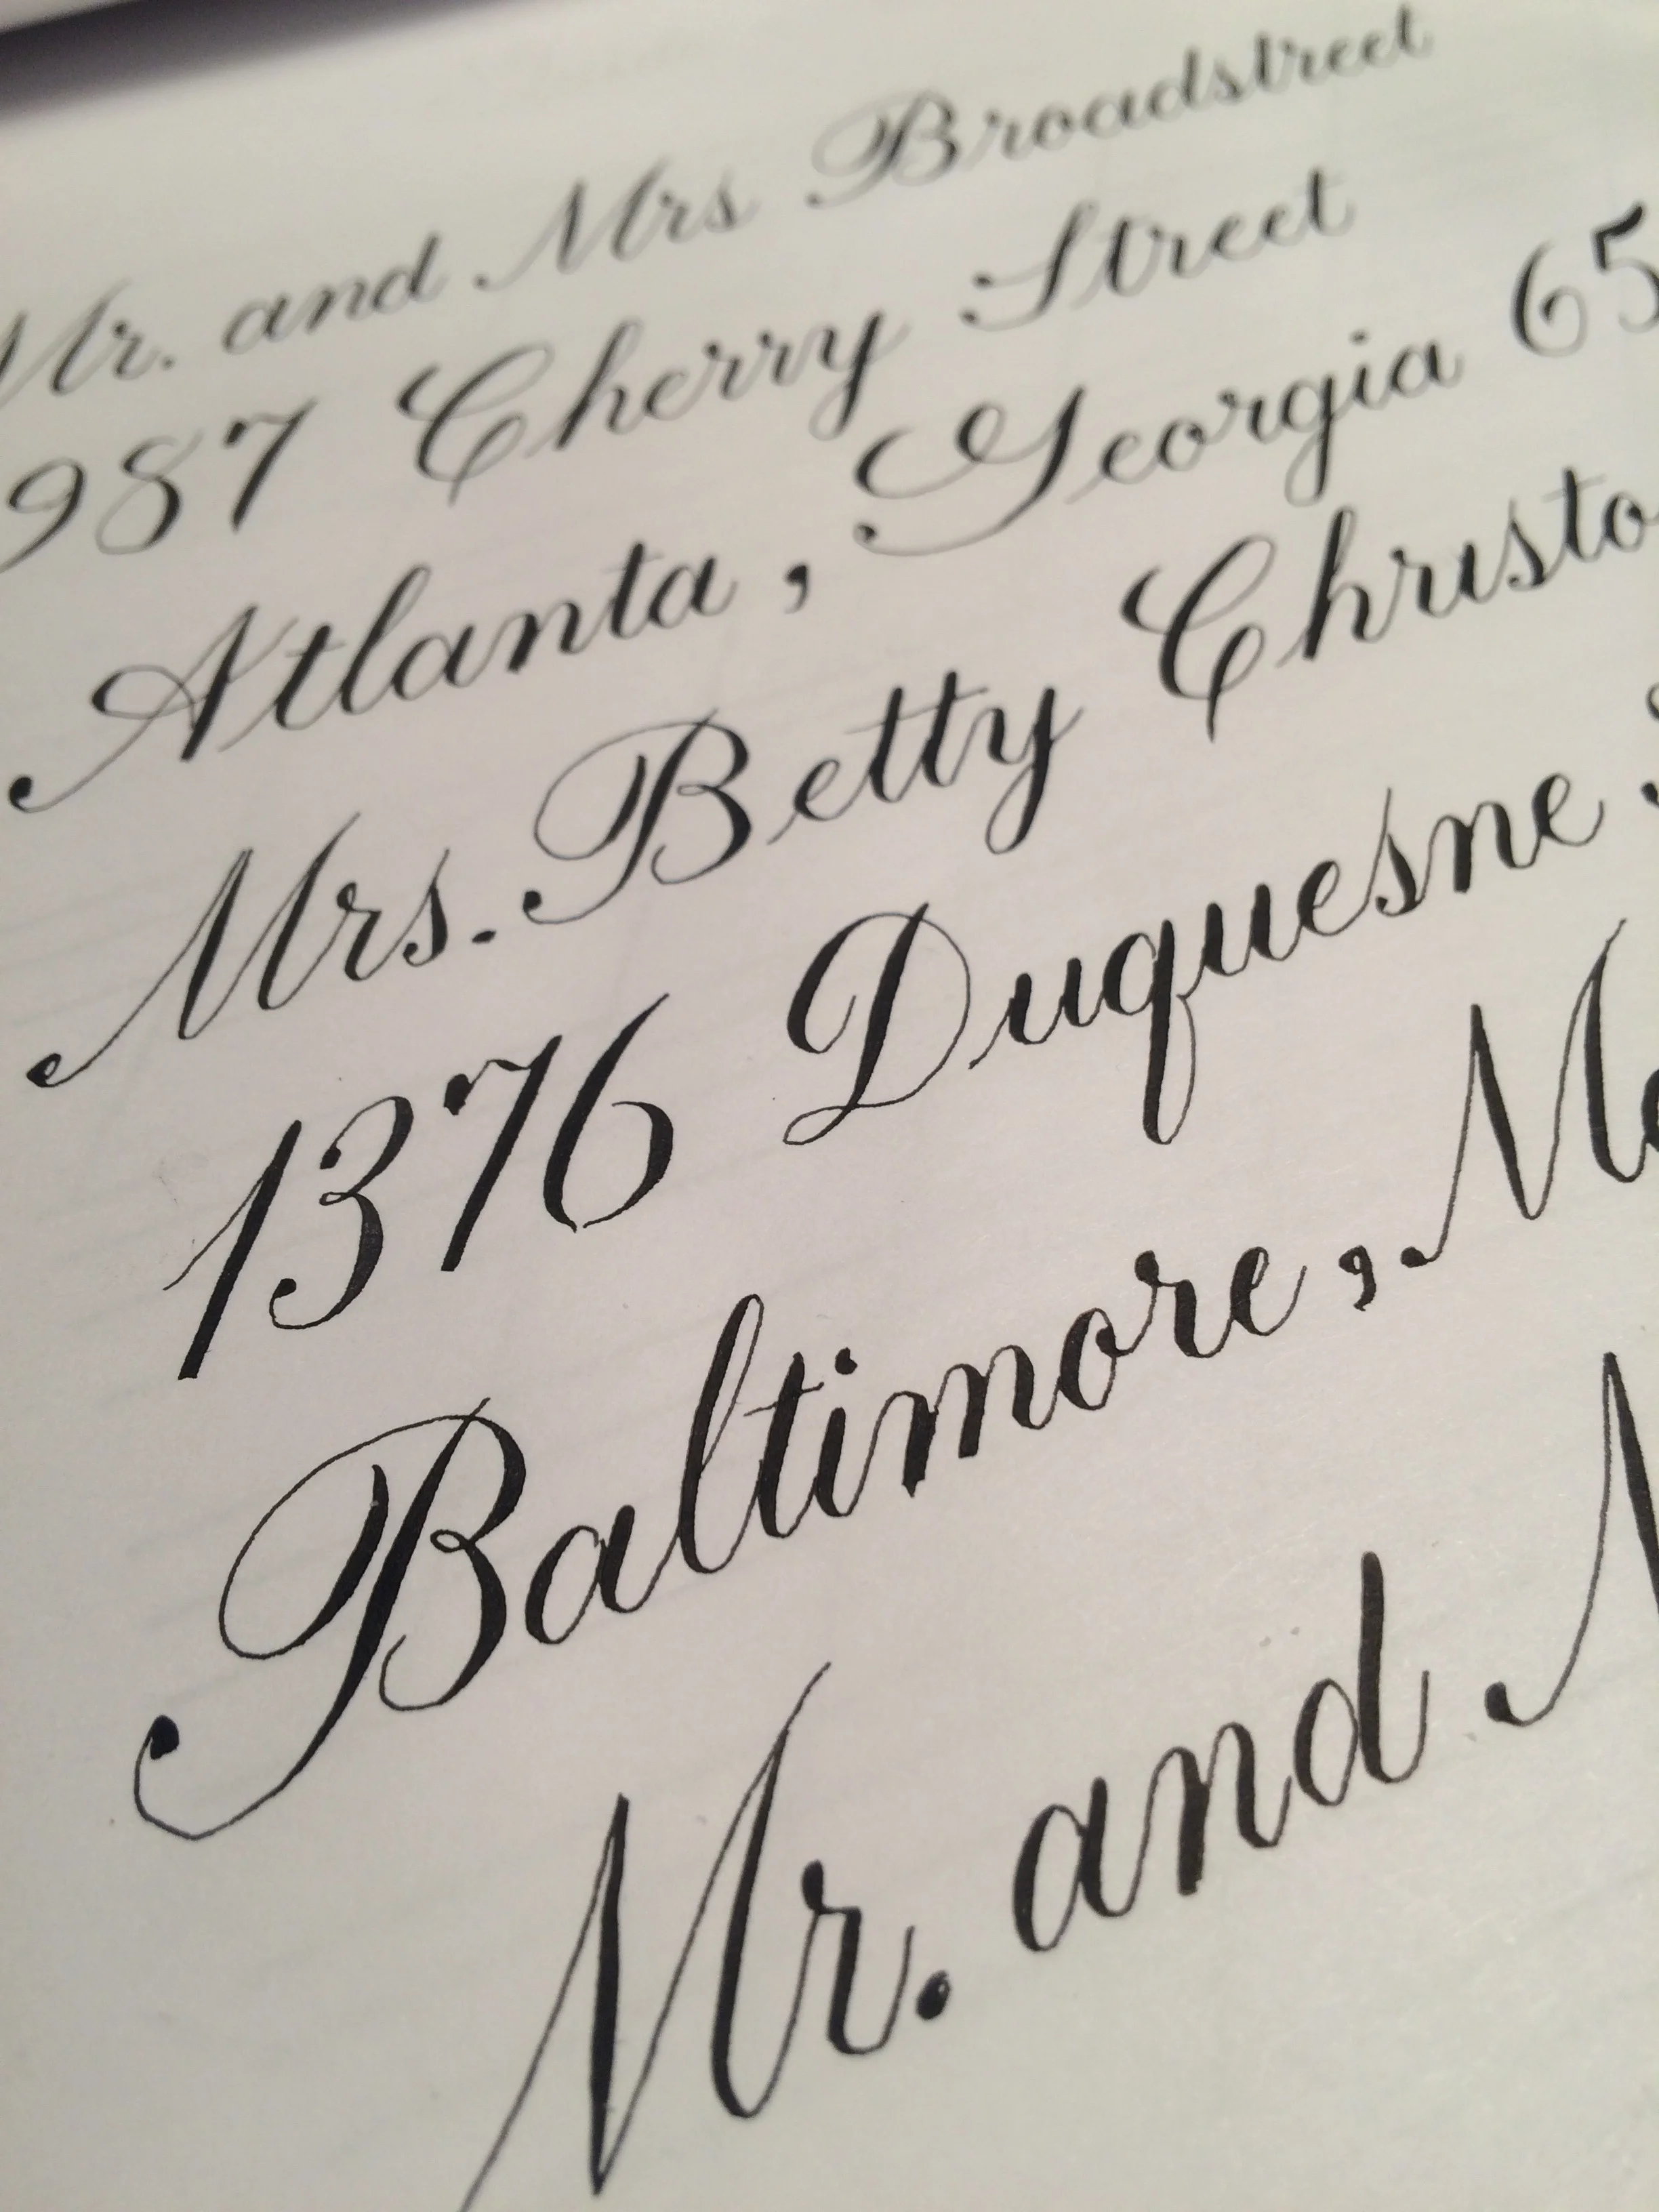 Mr. and Mrs Broadstreet
987 Cherry Street
Atlanta, Georgia 65
Mrs. Betty Christo
1376 Duquesne
Baltimore, M
Mr. and M